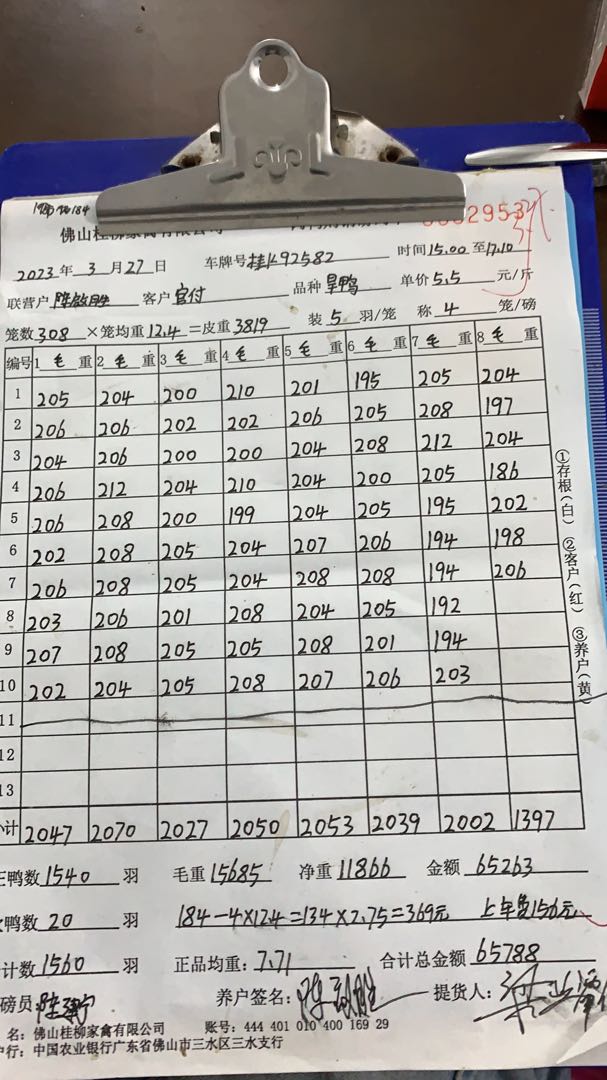 1980 184
佛山桂柳家禽有限公司
2023年3月27日 车牌号桂K92582 时间15.00至17.10
联营户 陈敏胜 客户 官付 品种 旱鸭 单价5.5 元/斤
笼数308×笼均重12.4=皮重3819 装5羽/笼 称4笼/磅
编号 1毛重 2毛重 3毛重 4毛重 5毛重 6毛重 7毛重 8毛重
1 205 204 200 210 201 195 205 204
2 206 206 202 202 206 205 208 197
3 204 206 200 200 204 208 212 204
4 206 212 204 210 204 200 205 186
5 206 208 200 199 204 205 195 202
6 202 208 205 204 207 206 194 198
7 206 208 205 204 208 208 194 206
8 203 206 201 208 204 205 192
9 207 208 205 205 208 201 194
10 202 204 205 208 207 206 203
11
12
13
小计 2047 2070 2027 2050 2053 2039 2002 1397
①存根(白) ②客户(红) ③养户(黄)
正鸭数1540羽 毛重15685 净重11866 金额65263
鸭数20羽 184-4×12.4=134×2.75=369元 上车费156元
计数1560羽 正品均重:7.71 合计总金额65788
磅员: 养户签名: 提货人:
名:佛山桂柳家禽有限公司 账号:444 401 010 400 169 29
户行:中国农业银行广东省佛山市三水区三水支行